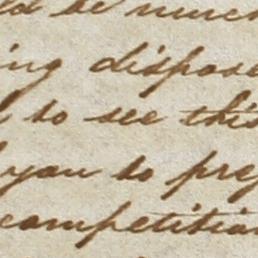 be
ing dispose
to see this
you to pre
competition